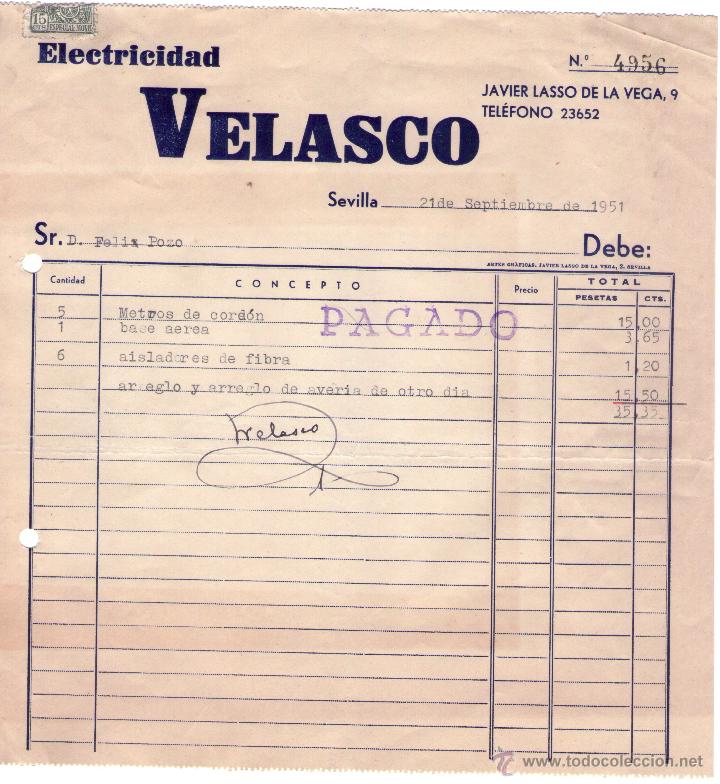 15 CTS ESPECIAL MOVIL
Electricidad
VELASCO
N.º 4956
JAVIER LASSO DE LA VEGA, 9
TELÉFONO 23652
Sevilla 21 de Septiembre de 1951
Sr. D. Felix Pozo Debe:
ARTES GRÁFICAS, JAVIER LASSO DE LA VEGA, 3. SEVILLA
Cantidad CONCEPTO Precio TOTAL
PESETAS CTS.
5 Metros de cordón 15,00
1 base aerea 3,65
PAGADO
6 aisladores de fibra 1,20
arreglo y arreglo de averia de otro dia 15,50
35,35
Velasco
TC www.todocoleccion.net